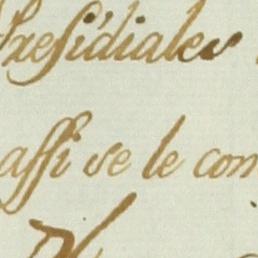 Presidiales
assi se le con